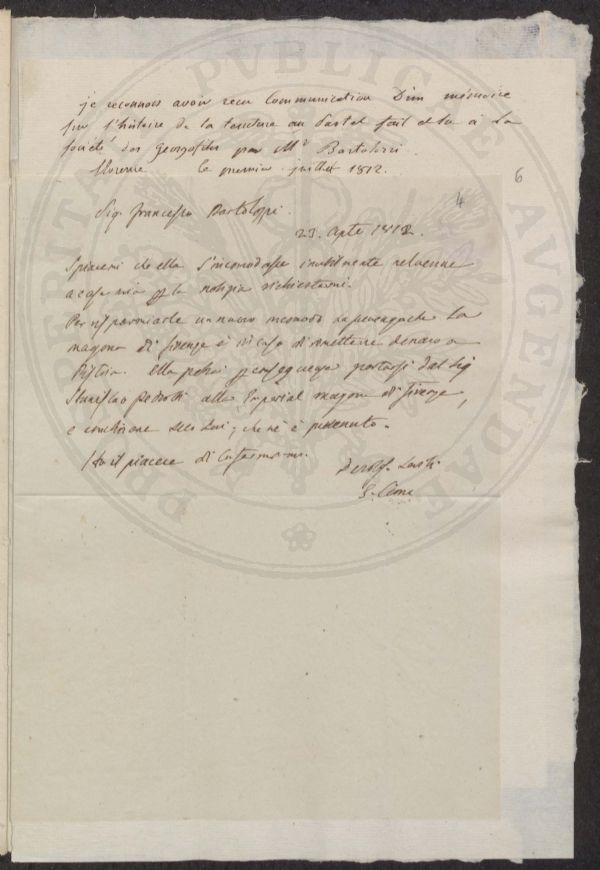 je reconnois avoir recu Communication D'un mémoire
sur l'histoire de la teinture au Pastel fait et lu à La
société des georgofiles par Mr Bartolozzi
florence le premier juillet 1812.
4
6
Sig. Francesco Bartolozzi.
23. Agto 1812.
Spiacemi che ella s'incomodasse inutilmente
a casa mia p la notizia richiestami.
Per risparmiarle un nuovo incomodo La
magona di firenze è di rimettere denaro a
Pistoia. Ella potrà p conseguenza portarsi dal Sig
Stanislao alla Imperial magona di firenze,
e combinare seco Lui, che ne è prevenuto.
Ho il piacere di Confermarmi.
PUBLICAE
AVGENDAE
PROSPERITATI